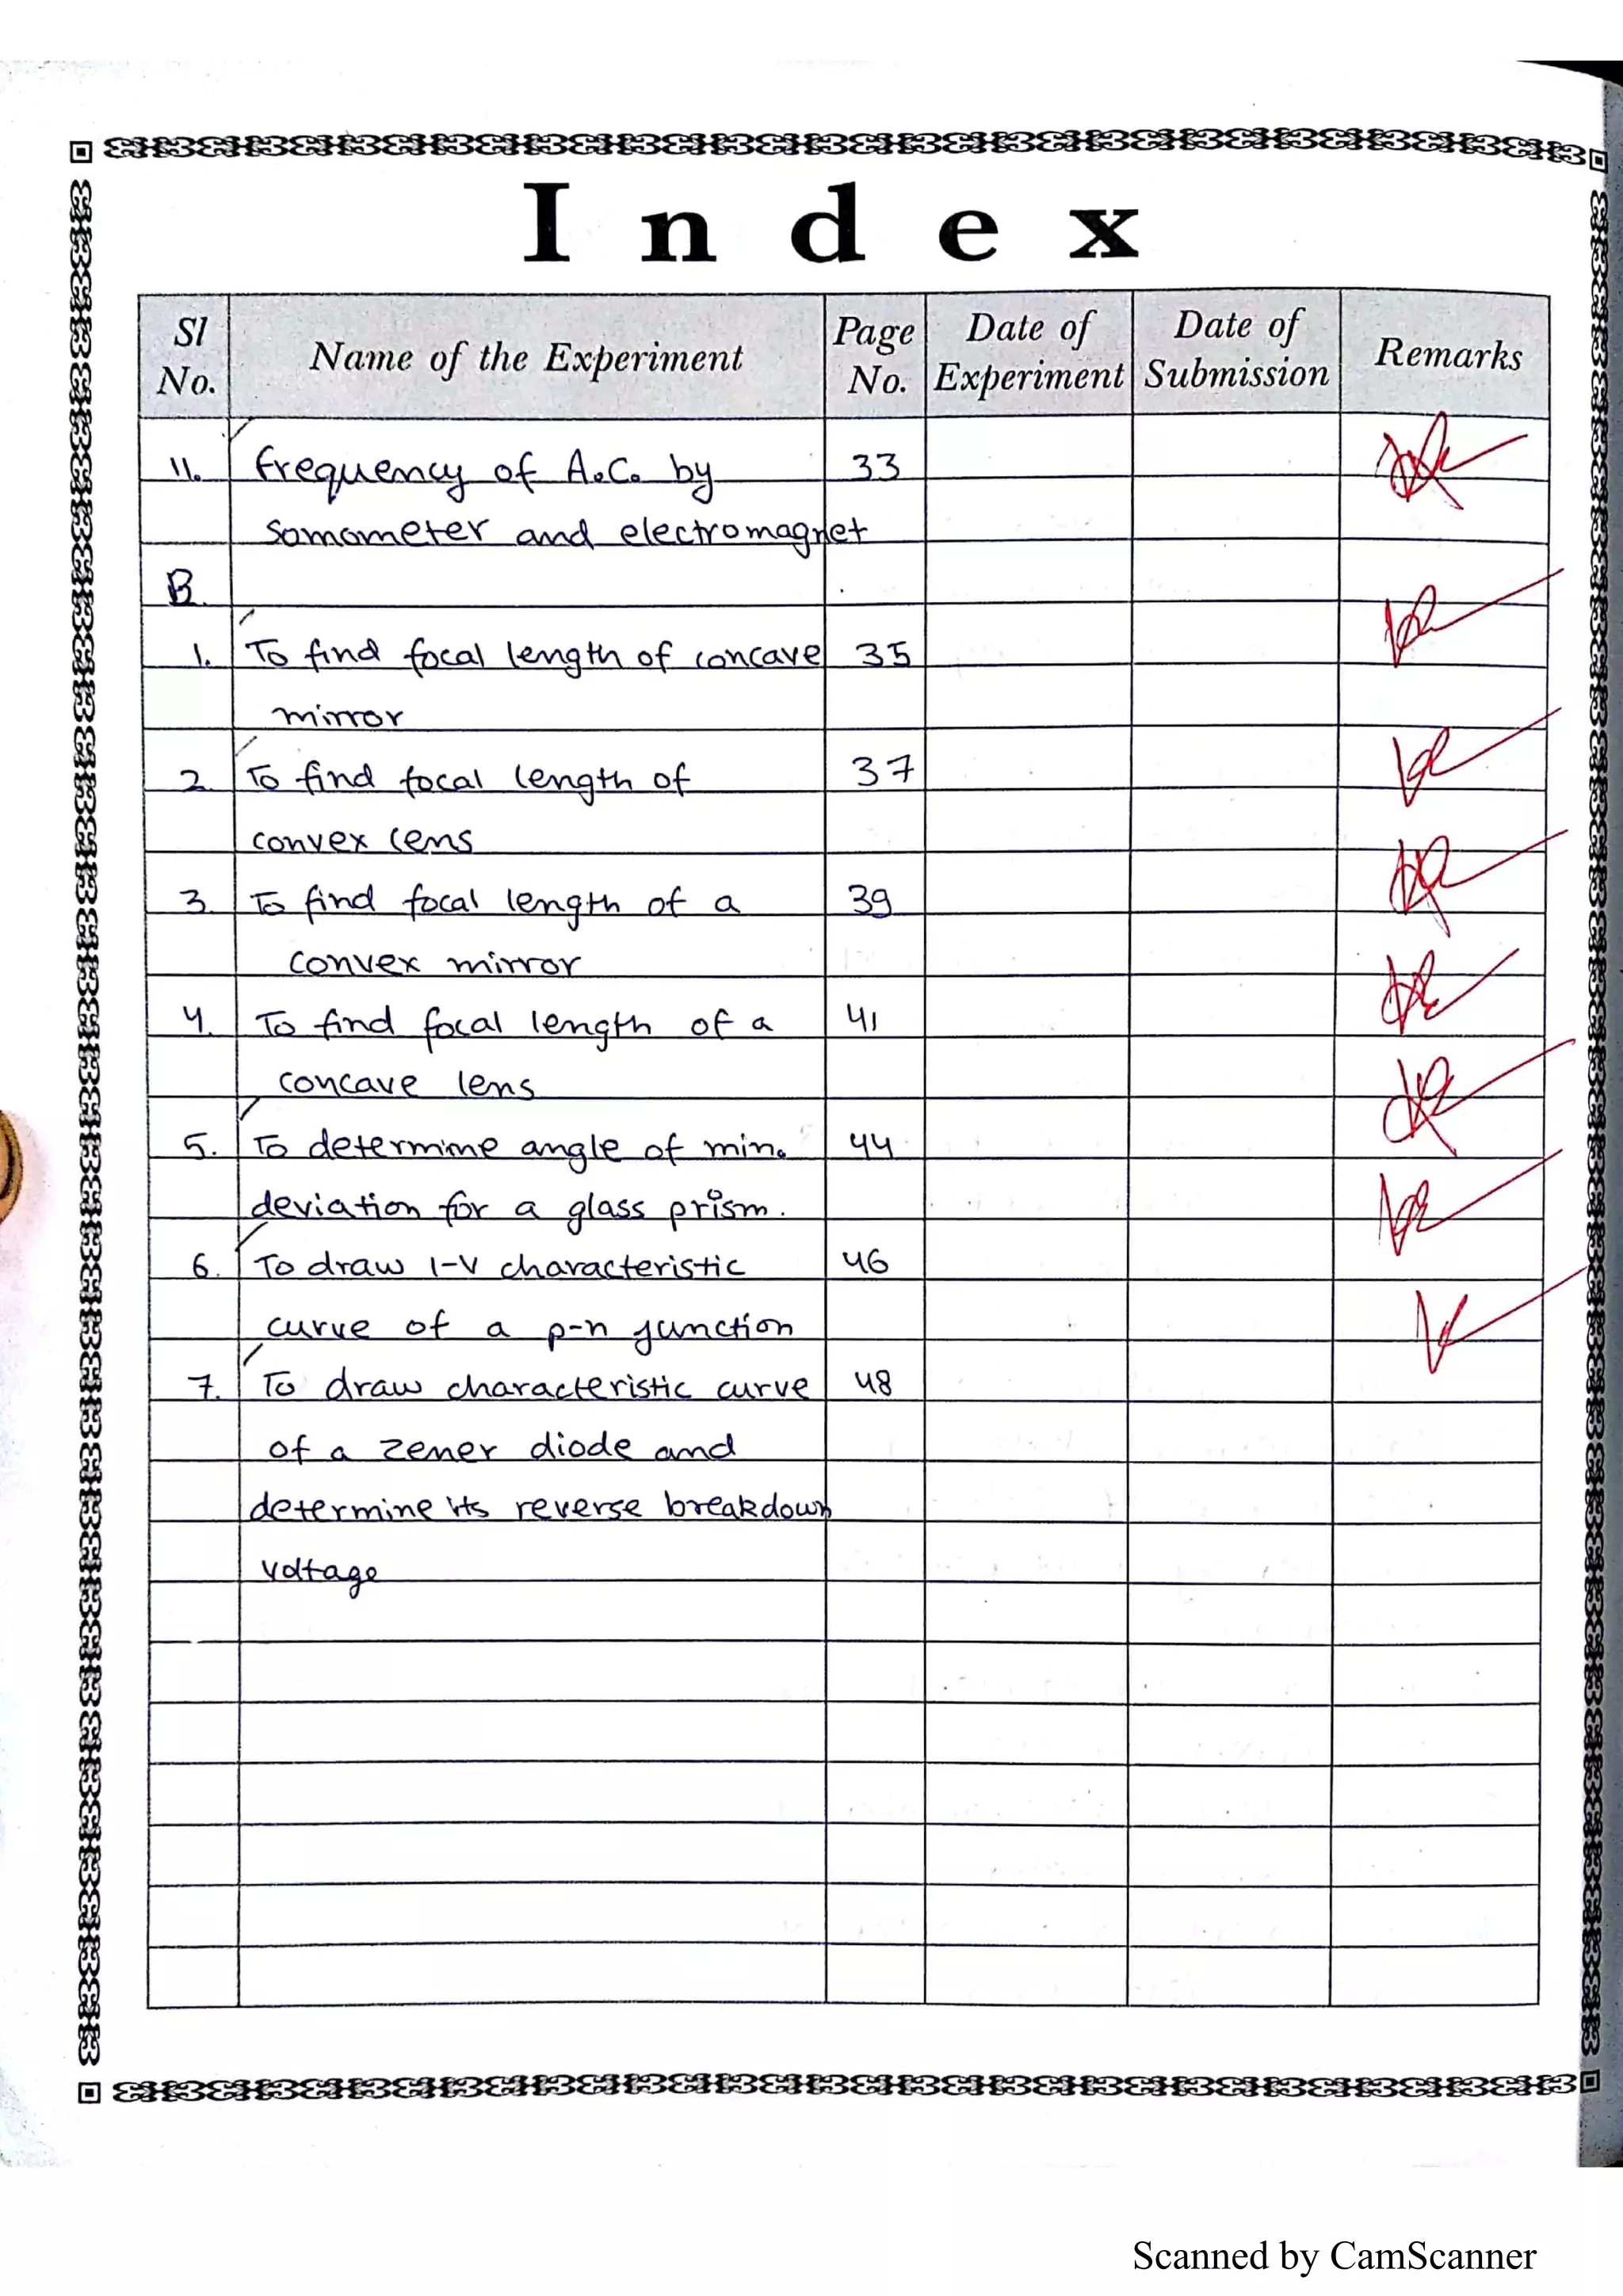 Index
Sl No. Name of the Experiment Page No. Date of Experiment Date of Submission Remarks
11. Frequency of A.C. by 33
Somometer and electromagnet
B.
1. To find focal length of concave 35
mirror
2. To find focal length of 37
convex lens
3. To find focal length of a 39
convex mirror
4. To find focal length of a 41
concave lens
5. To determine angle of min. 44
deviation for a glass prism.
6. To draw I-V characteristic 46
curve of a p-n junction
7. To draw characteristic curve 48
of a Zener diode and
determine its reverse breakdown
voltage
Scanned by CamScanner